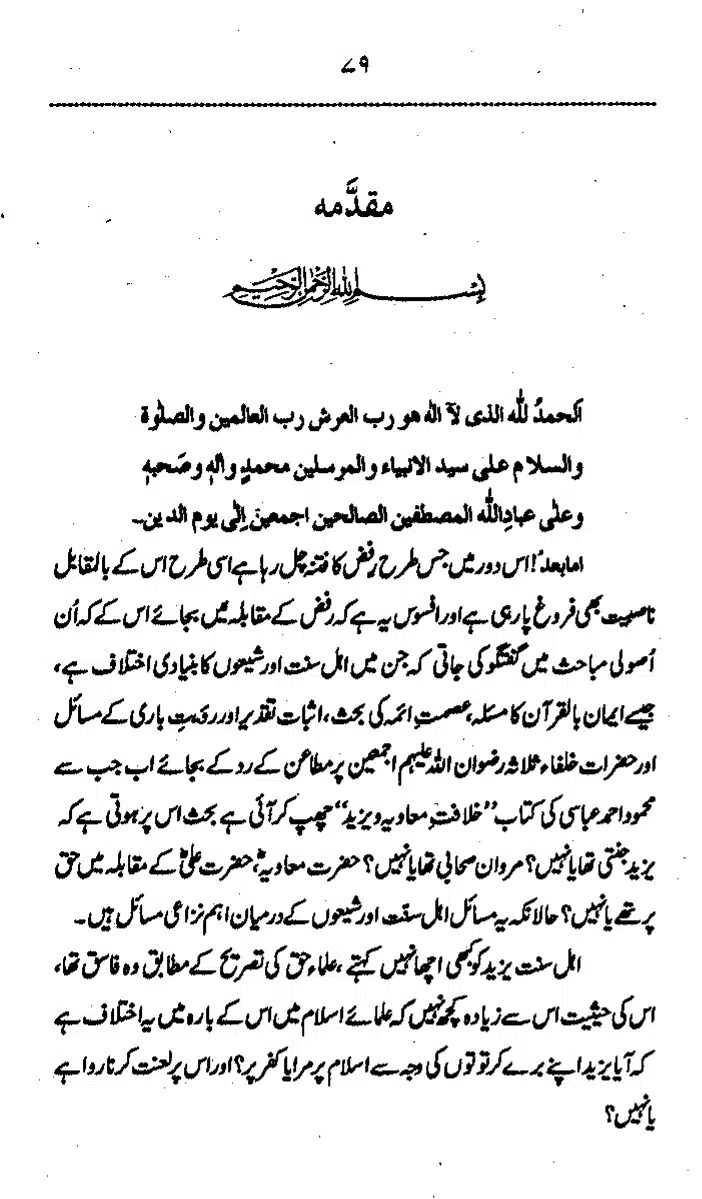 ۷۹
مقدَّمه
بِسْمِ اللهِ الرَّحْمٰنِ الرَّحِيْمِ
اَلحمدُ للّٰه الذی لآ اله هو رب العرش رب العالمین والصلوٰة
والسلام علی سید الانبیاء والمرسلین محمدٍ واٰلهٖ وصَحبهٖ
وعلٰی عبادِاللّٰه المصطفین الصالحین اجمعینَ اِلٰی یوم الدین۔
امابعدُ! اس دور میں جس طرح رفض کا فتنہ چل رہا ہے اسی طرح اس کے بالمقابل
ناصبیت بھی فروغ پارہی ہے اور افسوس یہ ہے کہ رفض کے مقابلہ میں بجائے اس کے کہ اُن
اُصولی مباحث میں گفتگو کی جاتی کہ جن میں اہل سنت اور شیعوں کا بنیادی اختلاف ہے،
جیسے ایمان بالقرآن کا مسئلہ، عصمتِ ائمہ کی بحث، اثبات تقدیر اور رویتِ باری کے مسائل
اور حضرات خلفاء ثلاثہ رضوان اللہ علیہم اجمعین پر مطاعن کے رد کے بجائے اب جب سے
محمود احمد عباسی کی کتاب ”خلافتِ معاویہ و یزید“ چھپ کر آئی ہے بحث اس پر ہوتی ہے کہ
یزید جنتی تھا یا نہیں؟ مروان صحابی تھا یا نہیں؟ حضرت معاویہؓ، حضرت علیؓ کے مقابلہ میں حق
پر تھے یا نہیں؟ حالانکہ یہ مسائل اہل سنّت اور شیعوں کے درمیان اہم نزاعی مسائل ہیں۔
اہل سنت یزید کو کبھی اچھا نہیں کہتے، علماءِ حق کی تصریح کے مطابق وہ فاسق تھا،
اس کی حیثیت اس سے زیادہ کچھ نہیں کہ علمائے اسلام میں اس کے بارہ میں یہ اختلاف ہے
کہ آیا یزید اپنے برے کرتوتوں کی وجہ سے اسلام پر مرا یا کفر پر؟ اور اس پر لعنت کرنا روا ہے
یا نہیں؟